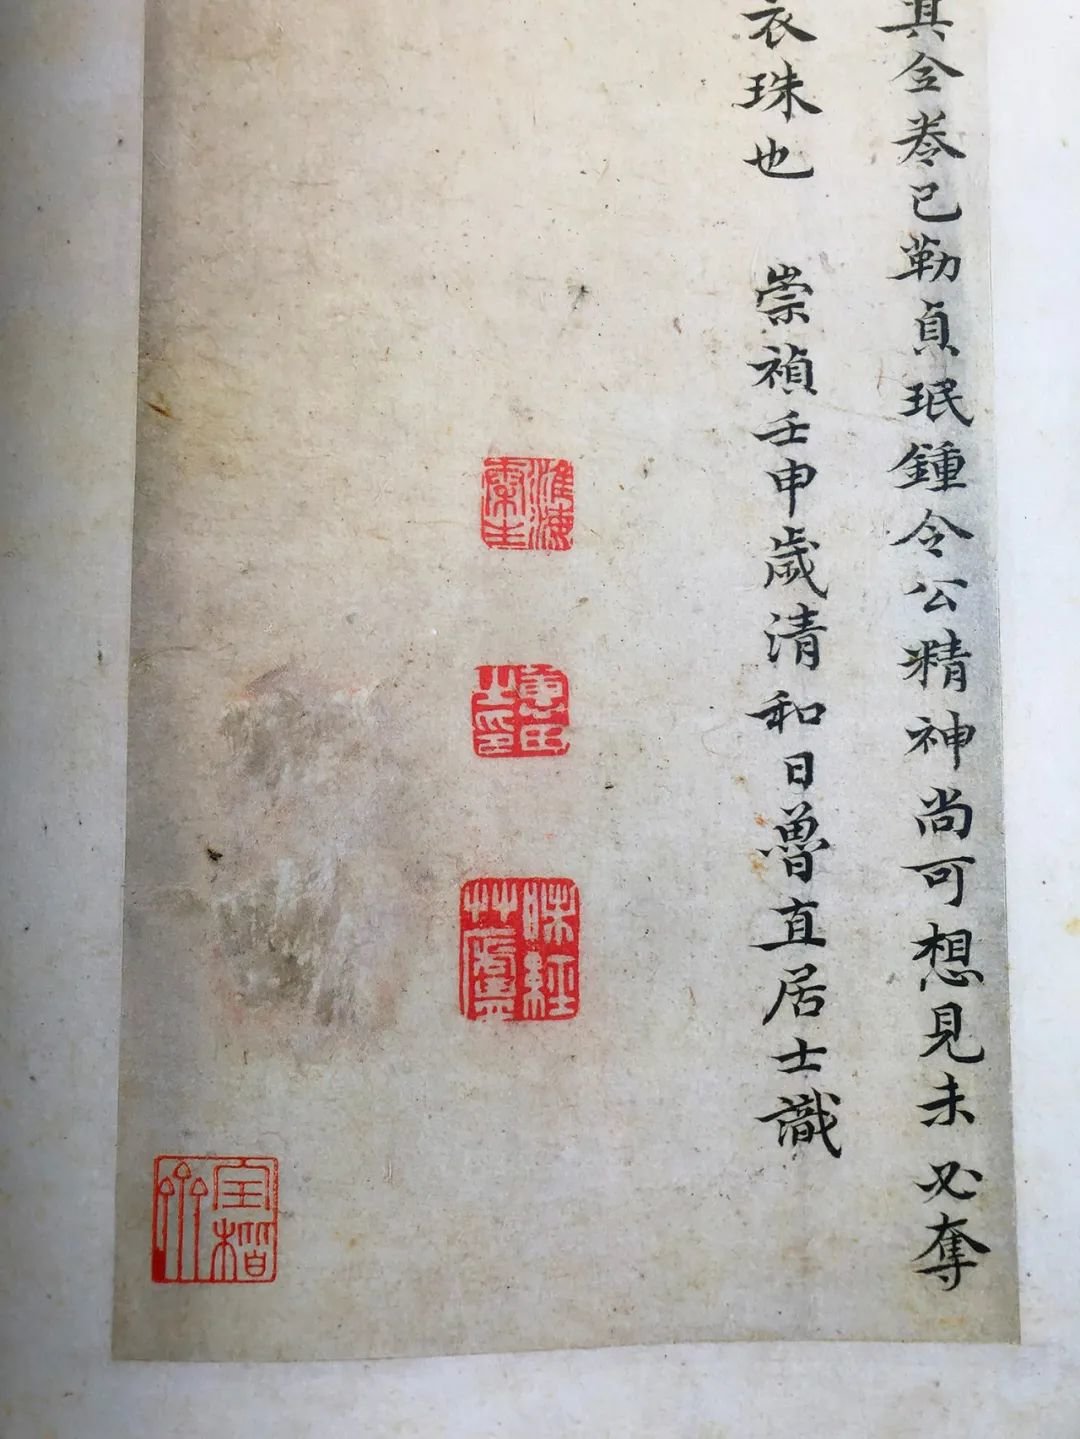 真令卷已勒貞珉鍾令公精神尚可想見未必奪
衣珠也　崇禎壬申歲清和日魯直居士識
淮海
惠氏之印
味經